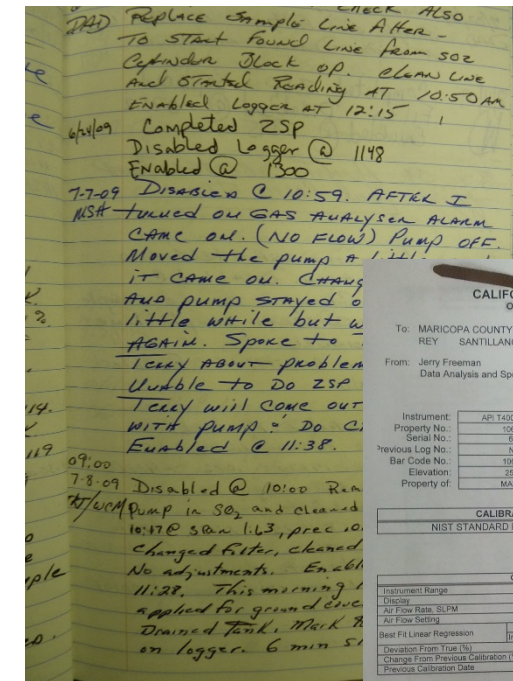 CHECK ALSO
DAD Replace Sample Line After -
To Start Found Line From SO2
Cylinder Block op. Clean Line
And Started Reading AT 10:50 AM
Enabled Logger AT 12:15
6/24/09 Completed ZSP
Disabled Logger @ 1148
Enabled @ 1300
7-7-09 Disabled @ 10:59. AFTER I
MSH turned on GAS ANALYSER ALARM
CAME ON. (NO FLOW) Pump OFF.
Moved the pump A little
it CAME ON.
AND pump STAYED
little while but
AGAIN. Spoke to
Terry About problem
Unable to Do ZSP
Terry will come out
with pump & Do
Enabled @ 11:38.
09:00
7-8-09 Disabled @ 10:00
Pump in SO2 and cleaned
10:17 @ span 1.63, prec
Changed filter, cleaned
No adjustments.
11:28. This morning
applied for ground
Drained Tank, Mark
on logger. 6 min
14.
119
ple
To: MARICOPA COUNTY
REY
From: Jerry Freeman
Data Analysis and
Instrument: API
Property No.:
Serial No.:
Previous Log No.:
Bar Code No.:
Elevation:
Property of:
NIST STANDARD
Instrument Range
Display
Air Flow Rate, SLPM
Air Flow Setting
Best Fit Linear Regression
Deviation From True (%)
Change From Previous Calibration
Previous Calibration Date